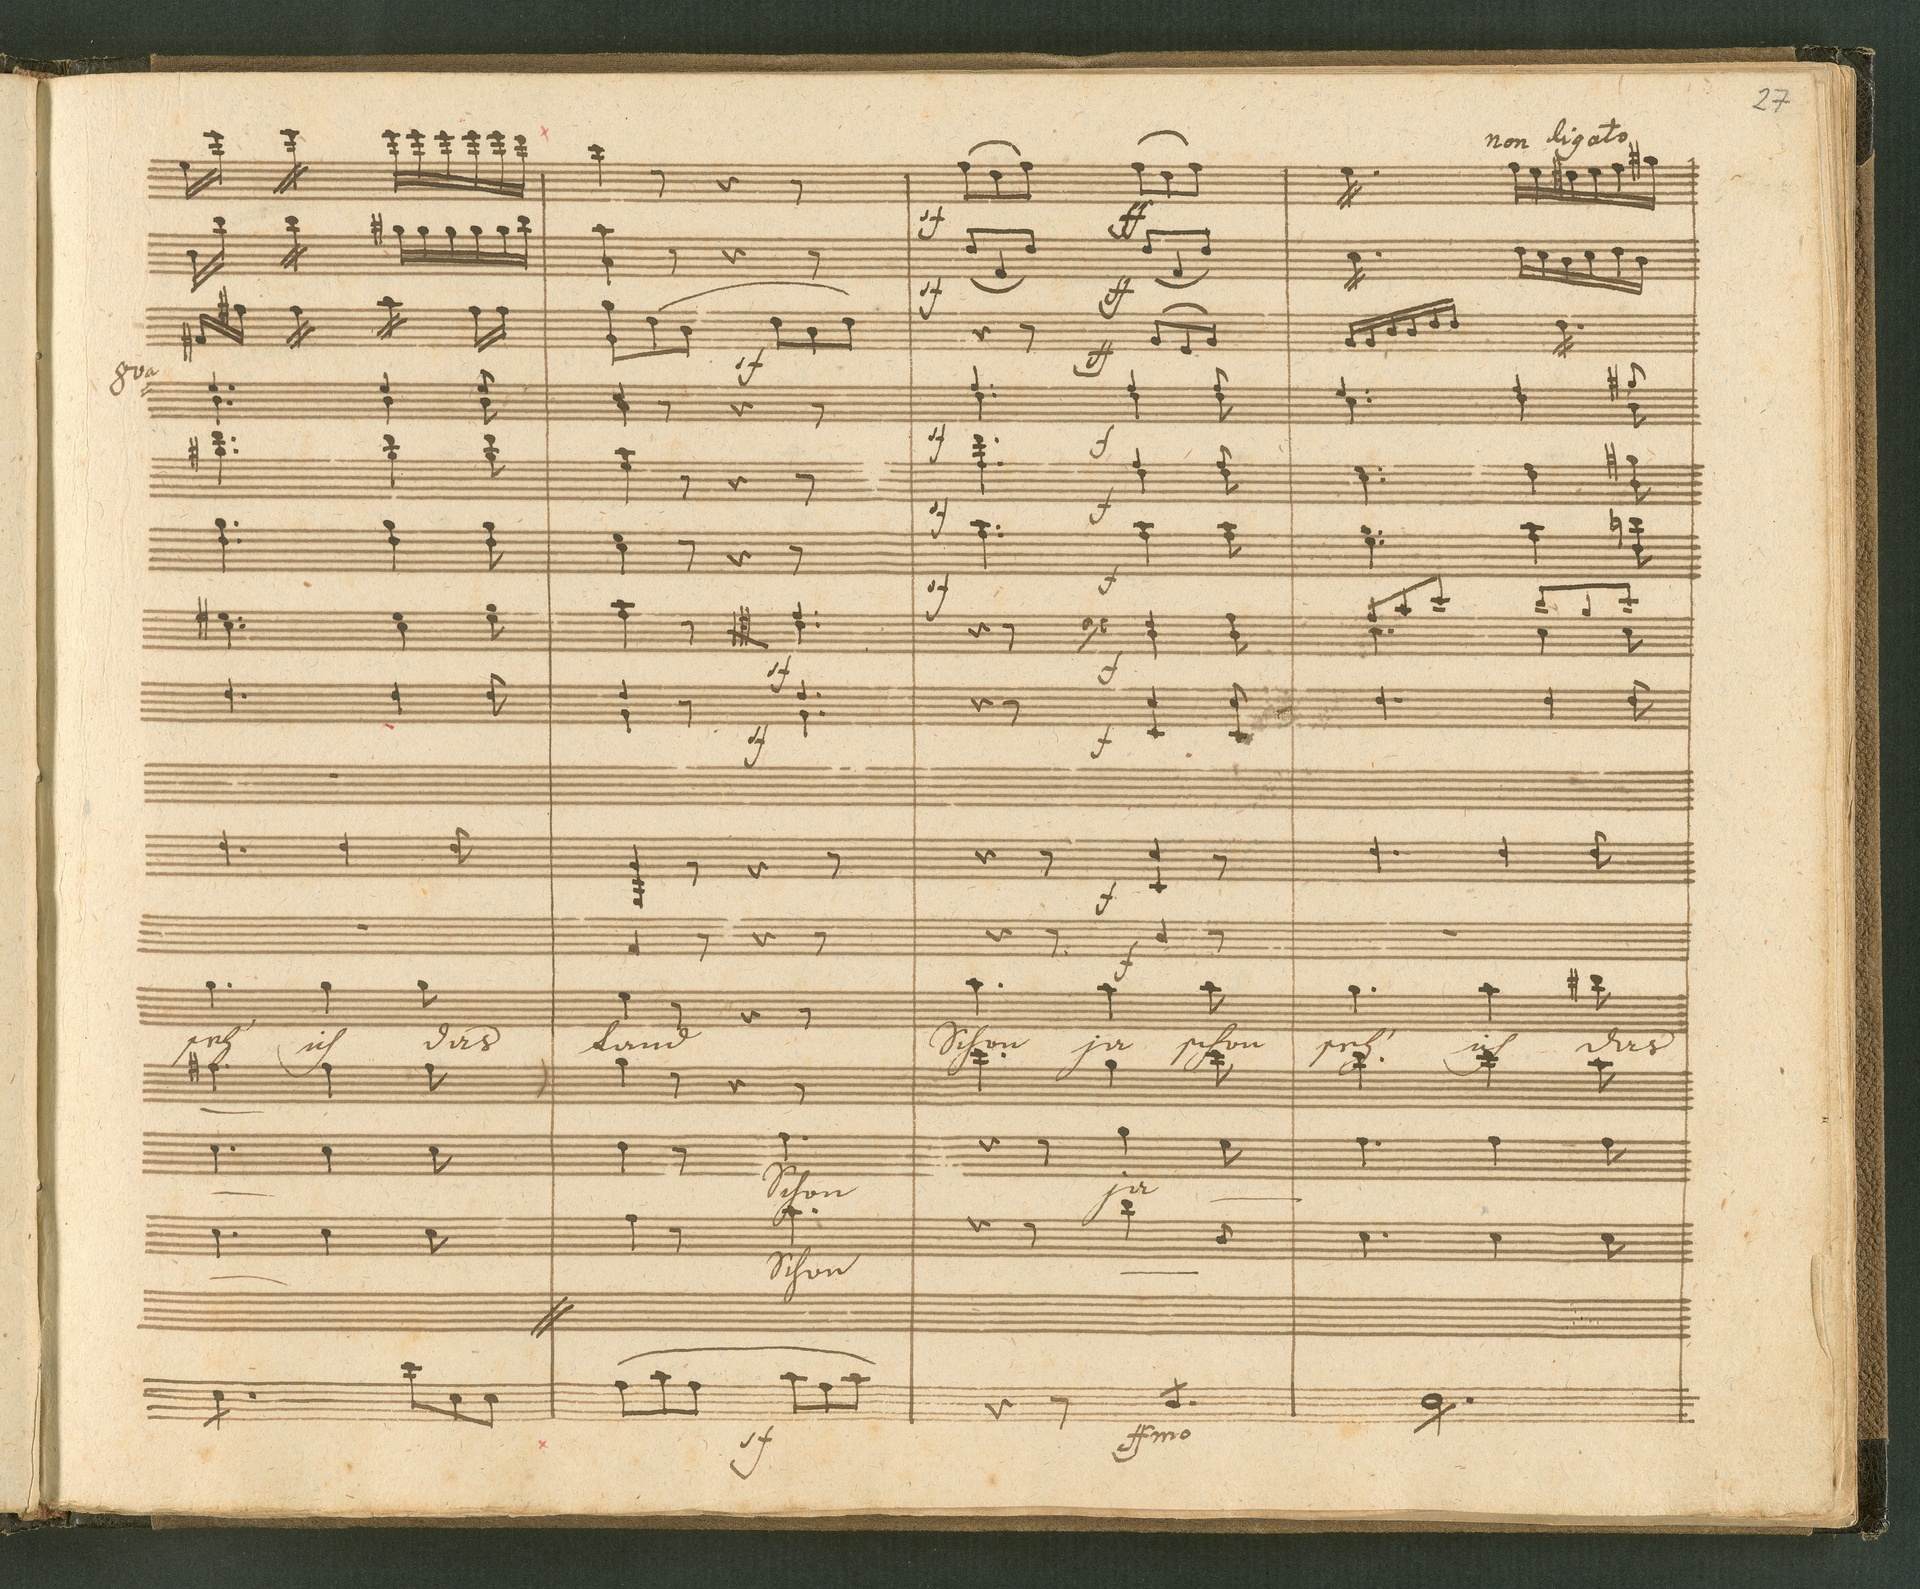 27
non ligato
sf ff
sf ff
sf sf
8va
sf f
sf f
sf f
sf f
sf f
f
f
seh' ich das Land Schon ja schon seh' ich das
Schon ja
Schon
sf ffmo